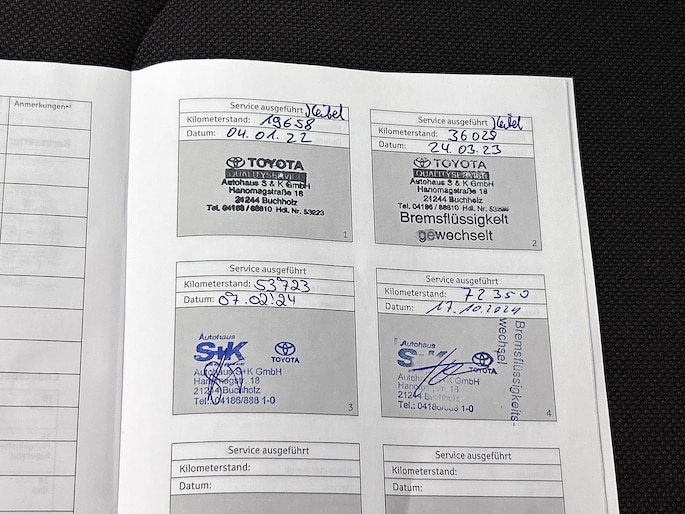 Anmerkungen*²
Service ausgeführt
Kilometerstand: 19658
Datum: 04.01.22
TOYOTA
QUALITYSERVICE
Autohaus S & K GmbH
Hanomagstraße 18
21244 Buchholz
Tel. 04186 / 88810 Hdl. Nr. 53223
1
Service ausgeführt
Kilometerstand: 36028
Datum: 24.03.23
TOYOTA
QUALITYSERVICE
Autohaus S & K GmbH
Hanomagstraße 18
21244 Buchholz
Tel. 04186 / 88810 Hdl. Nr.
Bremsflüssigkeit
gewechselt
2
Service ausgeführt
Kilometerstand: 53723
Datum: 07.02.24
Autohaus
S+K
TOYOTA
Autohaus S+K GmbH
Hanomagstr. 18
21244 Buchholz
Tel.: 04186/888 1-0
3
Service ausgeführt
Kilometerstand: 72350
Datum: 17.10.2024
Autohaus
S+K
TOYOTA
Autohaus S+K GmbH
Hanomagstr. 18
21244 Buchholz
Tel.: 04186/888 1-0
Bremsflüssigkeits-
wechsel
4
Service ausgeführt
Kilometerstand:
Datum:
Service ausgeführt
Kilometerstand:
Datum: